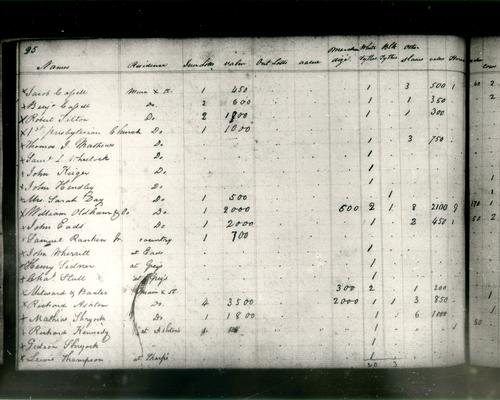 95
Names Residence Inn Lotts value Out Lotts value Merchandize White Tythes Blk Tythes Other Slaves value Horses value
x Jacob Cassell Main x st. 1 450 1 3 500 1 60 2
x Benj. Cassell Do 2 600 1 1 350 2
x Robert Tilton Do 2 1800 1 1 300
x 1st Presbyterian Church Do 1 1000
x Thomas J. Mathews Do 3 750
x Saml L Wheelock Do 1
x John Keiger Do 1
x John Hensley Do 1
x Mrs Sarah Day Do 1 500 1
x William Oldham & Co Do 1 2000 500 2 1 8 2100 9 170 1
x John Eads Do 1 2000 1 2 450 1 50 2
x Samuel Rankin Jr country 1 700
x John Wherritt at Eads 1
x Henry Sidner at Greys 1
x Chas. Stull at Greys 1
x Milward & Baxter Main x st 300 2 1 200
x Richard Ashton Do 4 3500 2000 1 1 3 850
+ Mathias Shryock Do 1 1800 1 6 1000
x Richard Kennedy at Ashtons 1 50
x Gideon Shryock 1
x Lewis Thompson at Tharps 1
20 3